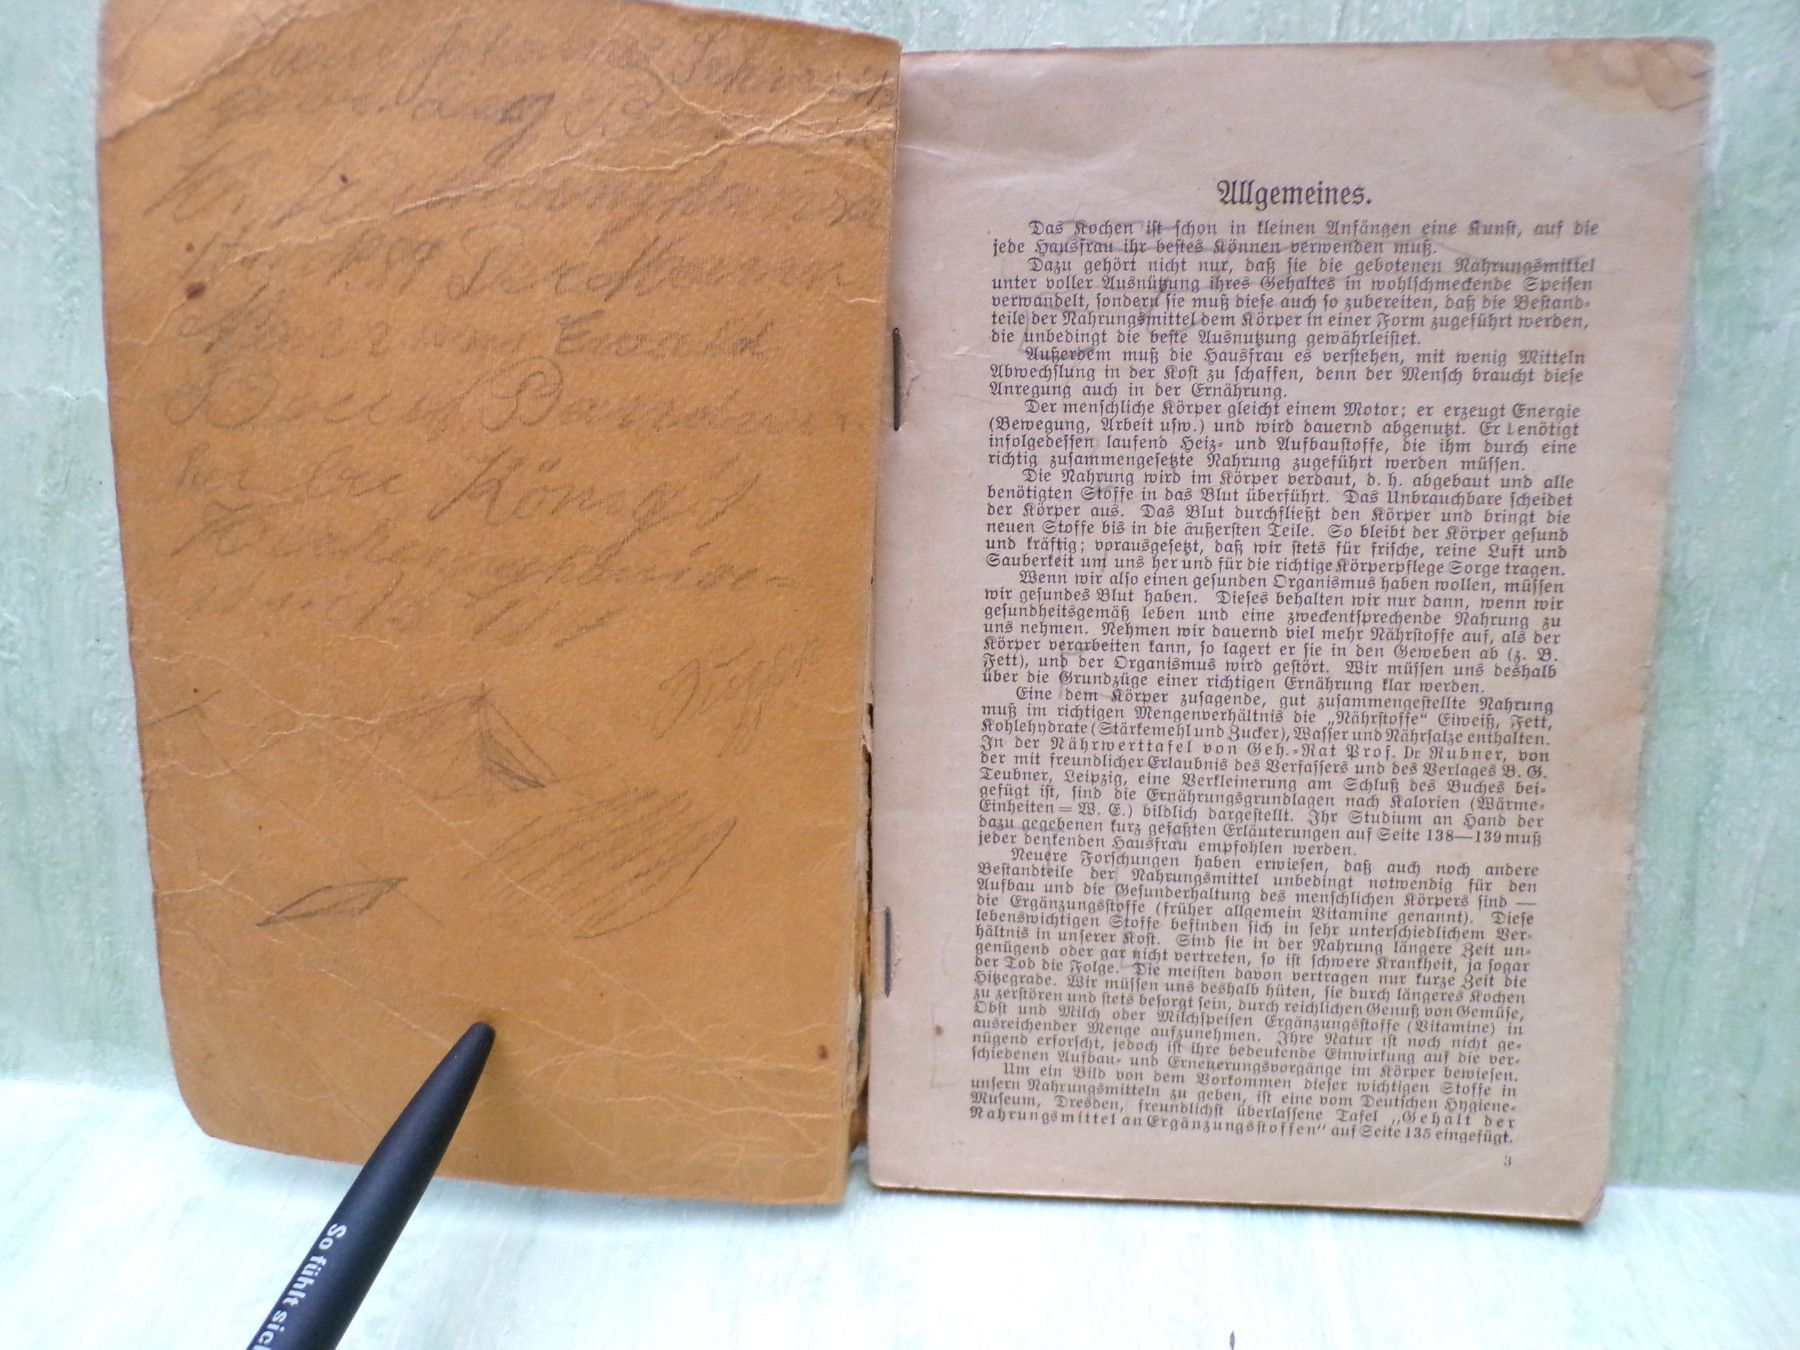 Ewald
König
Allgemeines.
Das Kochen ist schon in kleinen Anfängen eine Kunst, auf die
jede Hausfrau ihr bestes Können verwenden muß.
Dazu gehört nicht nur, daß sie die gebotenen Nahrungsmittel
unter voller Ausnützung ihres Gehaltes in wohlschmeckende Speisen
verwandelt, sondern sie muß diese auch so zubereiten, daß die Bestand-
teile der Nahrungsmittel dem Körper in einer Form zugeführt werden,
die unbedingt die beste Ausnutzung gewährleistet.
Außerdem muß die Hausfrau es verstehen, mit wenig Mitteln
Abwechslung in der Kost zu schaffen, denn der Mensch braucht diese
Anregung auch in der Ernährung.
Der menschliche Körper gleicht einem Motor; er erzeugt Energie
(Bewegung, Arbeit usw.) und wird dauernd abgenutzt. Er benötigt
infolgedessen laufend Heiz- und Aufbaustoffe, die ihm durch eine
richtig zusammengesetzte Nahrung zugeführt werden müssen.
Die Nahrung wird im Körper verdaut, d. h. abgebaut und alle
benötigten Stoffe in das Blut überführt. Das Unbrauchbare scheidet
der Körper aus. Das Blut durchfließt den Körper und bringt die
neuen Stoffe bis in die äußersten Teile. So bleibt der Körper gesund
und kräftig; vorausgesetzt, daß wir stets für frische, reine Luft und
Sauberkeit um uns her und für die richtige Körperpflege Sorge tragen.
Wenn wir also einen gesunden Organismus haben wollen, müssen
wir gesundes Blut haben. Dieses behalten wir nur dann, wenn wir
gesundheitsgemäß leben und eine zweckentsprechende Nahrung zu
uns nehmen. Nehmen wir dauernd viel mehr Nährstoffe auf, als der
Körper verarbeiten kann, so lagert er sie in den Geweben ab (z. B.
Fett), und der Organismus wird gestört. Wir müssen uns deshalb
über die Grundzüge einer richtigen Ernährung klar werden.
Eine dem Körper zusagende, gut zusammengestellte Nahrung
muß im richtigen Mengenverhältnis die „Nährstoffe“ Eiweiß, Fett,
Kohlehydrate (Stärkemehl und Zucker), Wasser und Nährsalze enthalten.
In der Nährwerttafel von Geh.-Rat Prof. Dr Rubner, von
der mit freundlicher Erlaubnis des Verfassers und des Verlages B. G.
Teubner, Leipzig, eine Verkleinerung am Schluß des Buches bei-
gefügt ist, sind die Ernährungsgrundlagen nach Kalorien (Wärme-
Einheiten = W. E.) bildlich dargestellt. Ihr Studium an Hand der
dazu gegebenen kurz gefaßten Erläuterungen auf Seite 138—139 muß
jeder denkenden Hausfrau empfohlen werden.
Neuere Forschungen haben erwiesen, daß auch noch andere
Bestandteile der Nahrungsmittel unbedingt notwendig für den
Aufbau und die Gesunderhaltung des menschlichen Körpers sind —
die Ergänzungsstoffe (früher allgemein Vitamine genannt). Diese
lebenswichtigen Stoffe befinden sich in sehr unterschiedlichem Ver-
hältnis in unserer Kost. Sind sie in der Nahrung längere Zeit un-
genügend oder gar nicht vertreten, so ist schwere Krankheit, ja sogar
der Tod die Folge. Die meisten davon vertragen nur kurze Zeit die
Hitzegrade. Wir müssen uns deshalb hüten, sie durch längeres Kochen
zu zerstören und stets besorgt sein, durch reichlichen Genuß von Gemüse,
Obst und Milch oder Milchspeisen Ergänzungsstoffe (Vitamine) in
ausreichender Menge aufzunehmen. Ihre Natur ist noch nicht ge-
nügend erforscht, jedoch ist ihre bedeutende Einwirkung auf die ver-
schiedenen Aufbau- und Erneuerungsvorgänge im Körper bewiesen.
Um ein Bild von dem Vorkommen dieser wichtigen Stoffe in
unsern Nahrungsmitteln zu geben, ist eine vom Deutschen Hygiene-
Museum, Dresden, freundlichst überlassene Tafel „Gehalt der
Nahrungsmittel an Ergänzungsstoffen“ auf Seite 135 eingefügt.
3
So fühlt sich